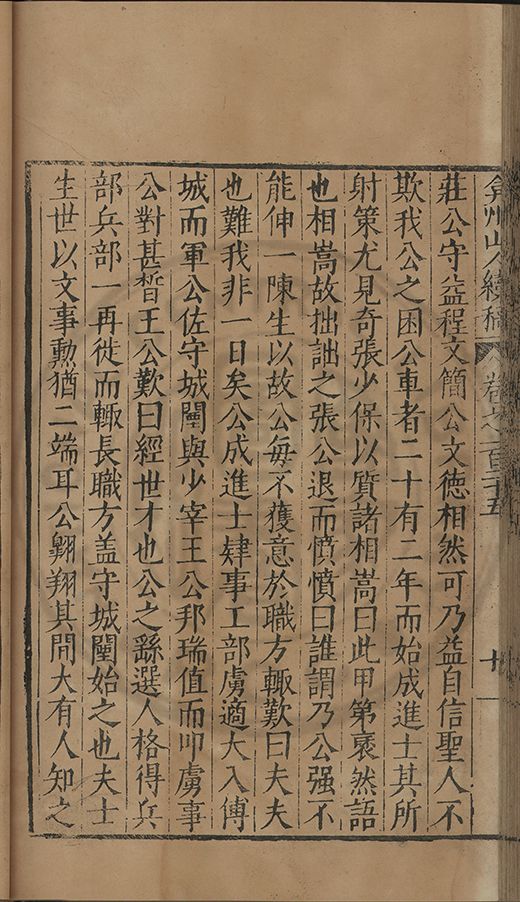 弇州山人續稿 卷之一百三十五 十一
莊公守益程文簡公文德相然可乃益自信聖人不
欺我公之困公車者二十有二年而始成進士其所
射策尤見奇張少保以質諸相嵩曰此甲第裒然語
也相嵩故拙詘之張公退而憤憤曰誰謂乃公强不
能伸一陳生以故公每不獲意於職方輙歎曰夫夫
也難我非一日矣公成進士肄事工部虜適大入傅
城而軍公佐守城闉與少宰王公邦瑞值而叩虜事
公對甚晳王公歎曰經世才也公之繇選人格得兵
部兵部一再徙而輙長職方盖守城闉始之也夫士
生世以文事勲猶二端耳公翺翔其間大有人知之